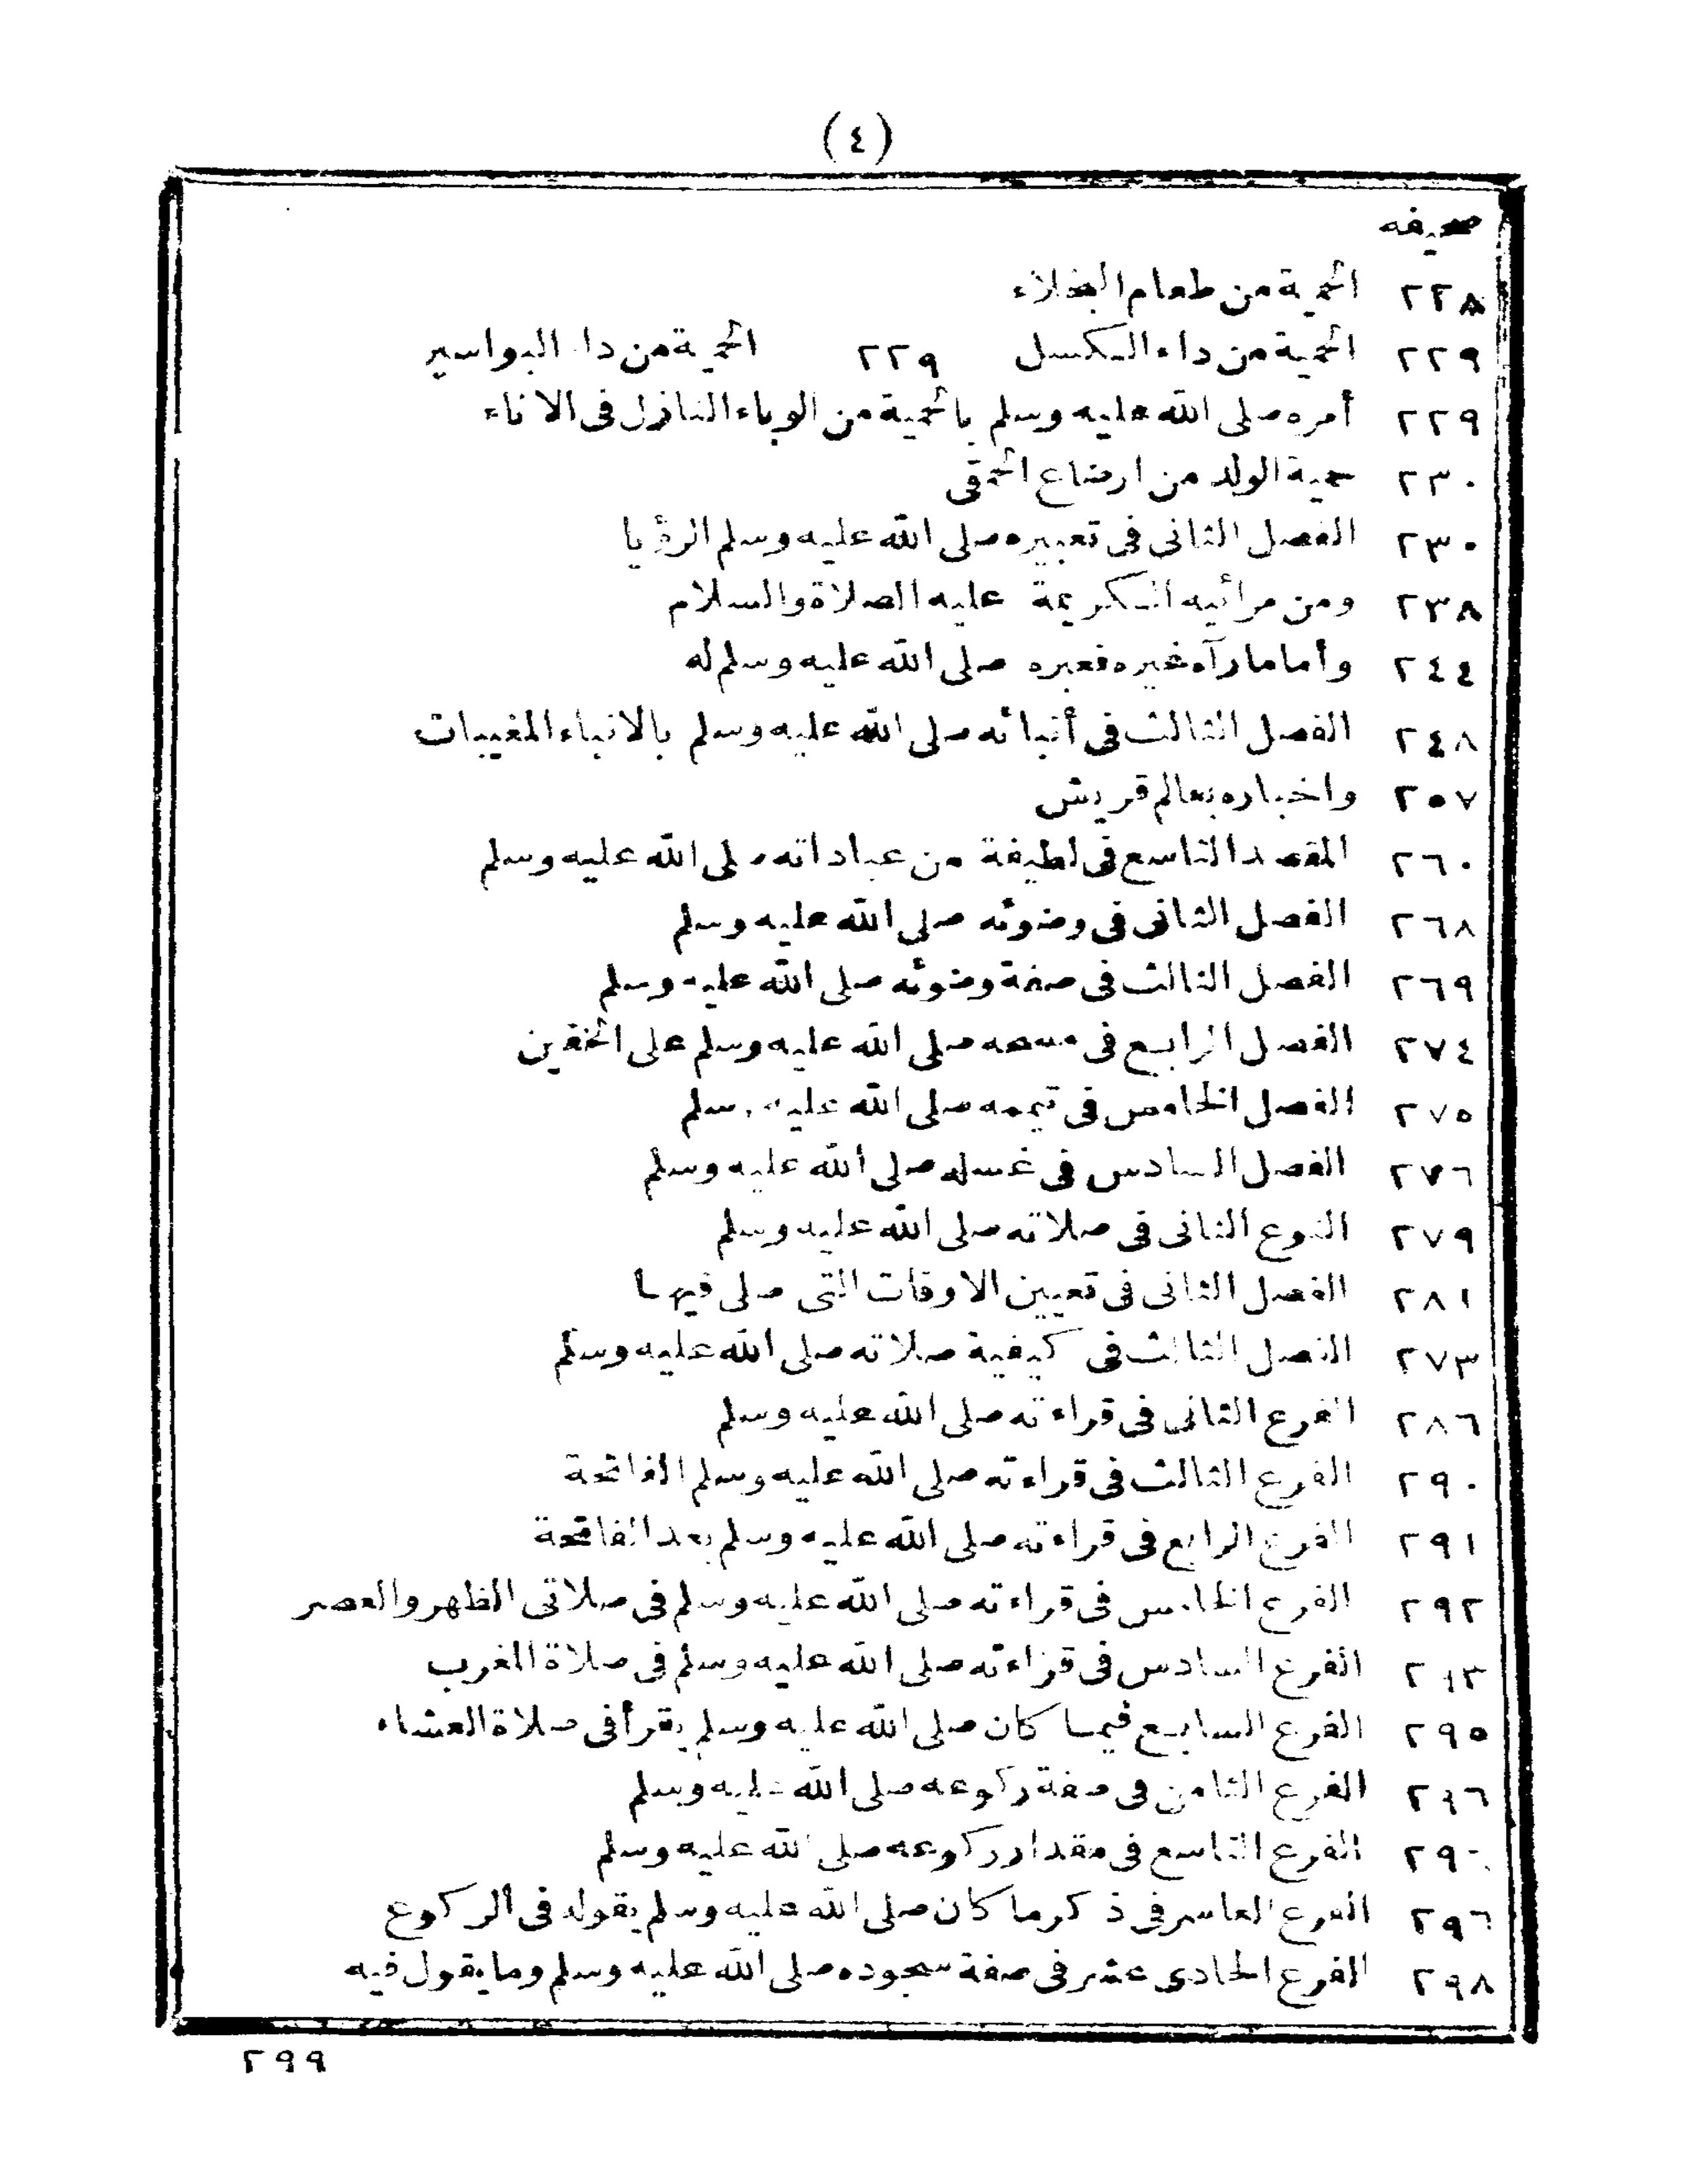 (٤)
صحيفه
٢٢٨ الحمية من طعام البخلاء
٢٢٩ الحمية من داء الكسل ٢٢٩ الحمية من داء البواسير
٢٢٩ أمره صلى الله عليه وسلم بالحمية من الوباء النازل فى الاناء
٢٣٠ حمية الولد من ارضاع الحمقى
٢٣٠ الفصل الثانى فى تعبيره صلى الله عليه وسلم الرؤيا
٢٣٨ ومن مرائيه الكريمة عليه الصلاة والسلام
٢٤٤ وأما ما رآه غيره فعبره صلى الله عليه وسلم له
٢٤٨ الفصل الثالث فى أنبائه صلى الله عليه وسلم بالانباء المغيبات
٢٥٧ واخباره بعالم قريش
٢٦٠ المقصد التاسع فى لطيفة من عباداته صلى الله عليه وسلم
٢٦٨ الفصل الثانى فى وضوئه صلى الله عليه وسلم
٢٦٩ الفصل الثالث فى صفة وضوئه صلى الله عليه وسلم
٢٧٤ الفصل الرابع فى مسحه صلى الله عليه وسلم على الخفين
٢٧٥ الفصل الخامس فى تيممه صلى الله عليه وسلم
٢٧٦ الفصل السادس فى غسله صلى الله عليه وسلم
٢٧٩ النوع الثانى فى صلاته صلى الله عليه وسلم
٢٨١ الفصل الثانى فى تعيين الاوقات التى صلى فيها
٢٧٣ الفصل الثالث فى كيفية صلاته صلى الله عليه وسلم
٢٨٦ الفرع الثانى فى قراءته صلى الله عليه وسلم
٢٩٠ الفرع الثالث فى قراءته صلى الله عليه وسلم الفاتحة
٢٩١ الفرع الرابع فى قراءته صلى الله عليه وسلم بعد الفاتحة
٢٩٢ الفرع الخامس فى قراءته صلى الله عليه وسلم فى صلاتى الظهر والعصر
٢٩٣ الفرع السادس فى قراءته صلى الله عليه وسلم فى صلاة المغرب
٢٩٥ الفرع السابع فيما كان صلى الله عليه وسلم يقرأ فى صلاة العشاء
٢٩٦ الفرع الثامن فى صفة ركوعه صلى الله عليه وسلم
٢٩٦ الفرع التاسع فى مقدار ركوعه صلى الله عليه وسلم
٢٩٦ الفرع العاشر فى ذكر ما كان صلى الله عليه وسلم يقوله فى الركوع
٢٩٨ الفرع الحادى عشر فى صفة سجوده صلى الله عليه وسلم وما يقول فيه
٢٩٩